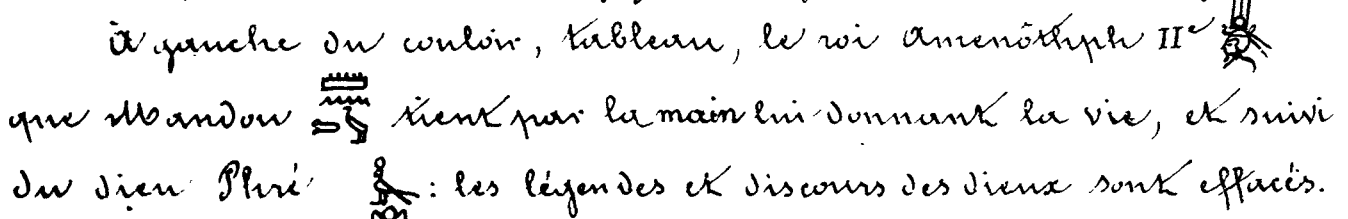 à gauche du couloir, tableau, le roi Amenôthph IIe
que Mandou tient par la main lui donnant la vie, et suivi
du dieu Phré : les légendes et discours des dieux sont effacés.